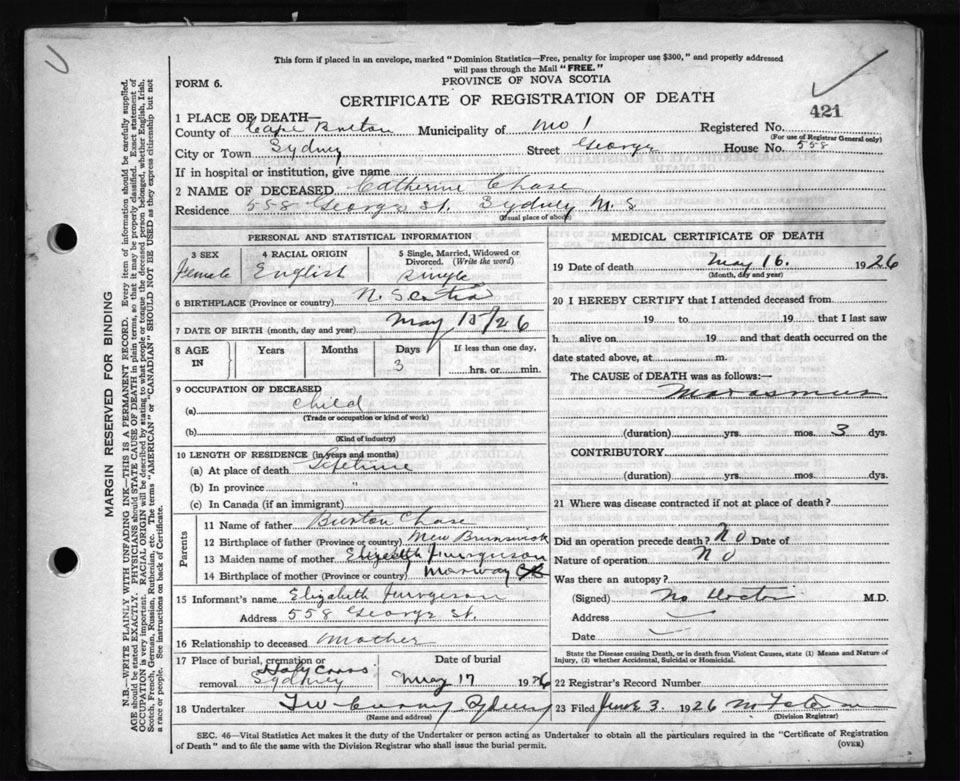 This form if placed in an envelope, marked "Dominion Statistics—Free, penalty for improper use $300," and properly addressed
will pass through the Mail "FREE."
FORM 6.
PROVINCE OF NOVA SCOTIA
CERTIFICATE OF REGISTRATION OF DEATH
421
1 PLACE OF DEATH—
County of Cape Breton Municipality of No 1 Registered No.
(For use of Registrar General only)
City or Town Sydney Street George House No. 558
If in hospital or institution, give name
2 NAME OF DECEASED Catherine Chase
Residence 558 George St. Sydney N. S
(Usual place of abode)
PERSONAL AND STATISTICAL INFORMATION
3 SEX
Female
4 RACIAL ORIGIN
English
5 Single, Married, Widowed or
Divorced. (Write the word)
Single
6 BIRTHPLACE (Province or country) N. Scotia
7 DATE OF BIRTH (month, day and year) May 13/26
8 AGE IN
Years
Months
Days
3
If less than one day,
hrs. or min.
9 OCCUPATION OF DECEASED
(a) Child
(Trade or occupation or kind of work)
(b)
(Kind of industry)
10 LENGTH OF RESIDENCE (in years and months)
(a) At place of death Lifetime
(b) In province "
(c) In Canada (if an immigrant)
Parents
11 Name of father Burton Chase
12 Birthplace of father (Province or country) New Brunswick
13 Maiden name of mother Elizabeth Furrgerson
14 Birthplace of mother (Province or country)
15 Informant's name Elizabeth Furrgerson
Address 558 George St.
16 Relationship to deceased Mother
17 Place of burial, cremation or
removal Holy Cross
Sydney
Date of burial
May 17 1926
18 Undertaker Sydney
(Name and address)
MEDICAL CERTIFICATE OF DEATH
19 Date of death May 16. 1926
(Month, day and year)
20 I HEREBY CERTIFY that I attended deceased from
19 to 19 that I last saw
h alive on 19 and that death occurred on the
date stated above, at m.
The CAUSE of DEATH was as follows:—
Marasmus
(duration) yrs. mos. 3 dys.
CONTRIBUTORY
(duration) yrs. mos. dys.
21 Where was disease contracted if not at place of death?
Did an operation precede death? No Date of
Nature of operation No
Was there an autopsy?
(Signed) No Doctor M.D.
Address
Date
State the Disease causing Death, or in death from Violent Causes, state (1) Means and Nature of
Injury, (2) whether Accidental, Suicidal or Homicidal.
22 Registrar's Record Number
23 Filed June 3. 1926
(Division Registrar)
SEC. 46—Vital Statistics Act makes it the duty of the Undertaker or person acting as Undertaker to obtain all the particulars required in the "Certificate of Registration
of Death" and to file the same with the Division Registrar who shall issue the burial permit.
(OVER)
MARGIN RESERVED FOR BINDING
N.B.—WRITE PLAINLY WITH UNFADING INK—THIS IS A PERMANENT RECORD. Every item of information should be carefully supplied.
AGE should be stated EXACTLY. PHYSICIANS should STATE CAUSE OF DEATH in plain terms, so that it may be properly classified. Exact statement of
OCCUPATION is very important. RACIAL ORIGIN will be described by stating to what people or tongue the deceased person belonged, whether English, Irish,
Scotch, French, German, Russian, Ruthenian, etc. The terms "AMERICAN" or "CANADIAN" SHOULD NOT BE USED as they express citizenship but not
a race or people. See instructions on back of Certificate.